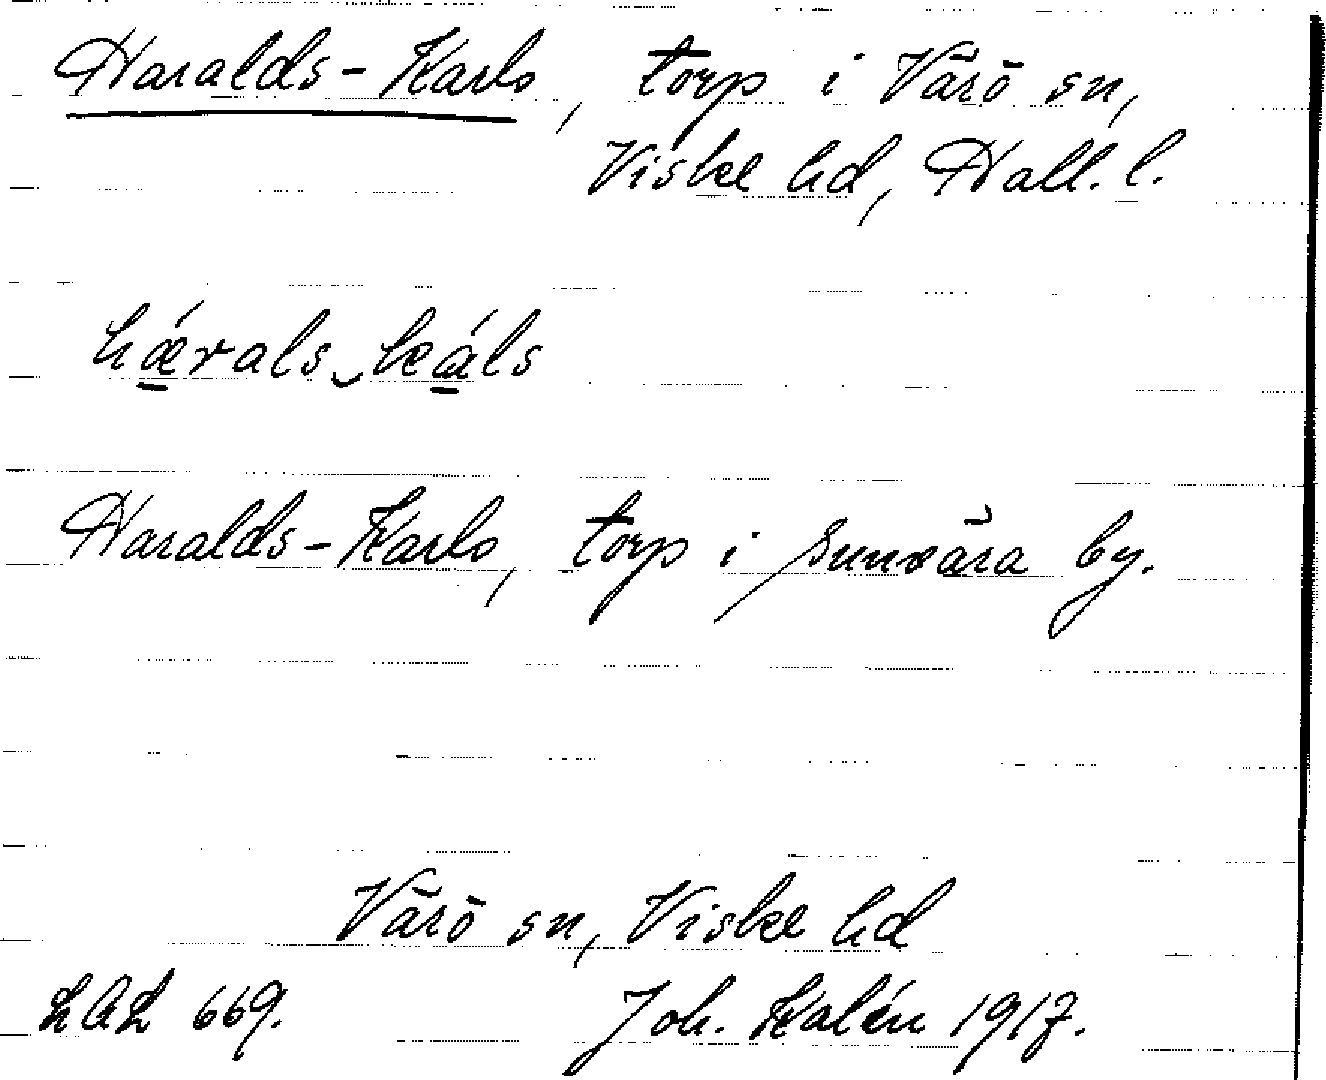 Haralds-Karls, torp i Värö sn,
Viske hd, Hall. l.
hǽrals‿keáls
Haralds-Karls, torp i Sunvära by.
Värö sn, Viske hd
LAL 669. Joh. Kalén 1917.